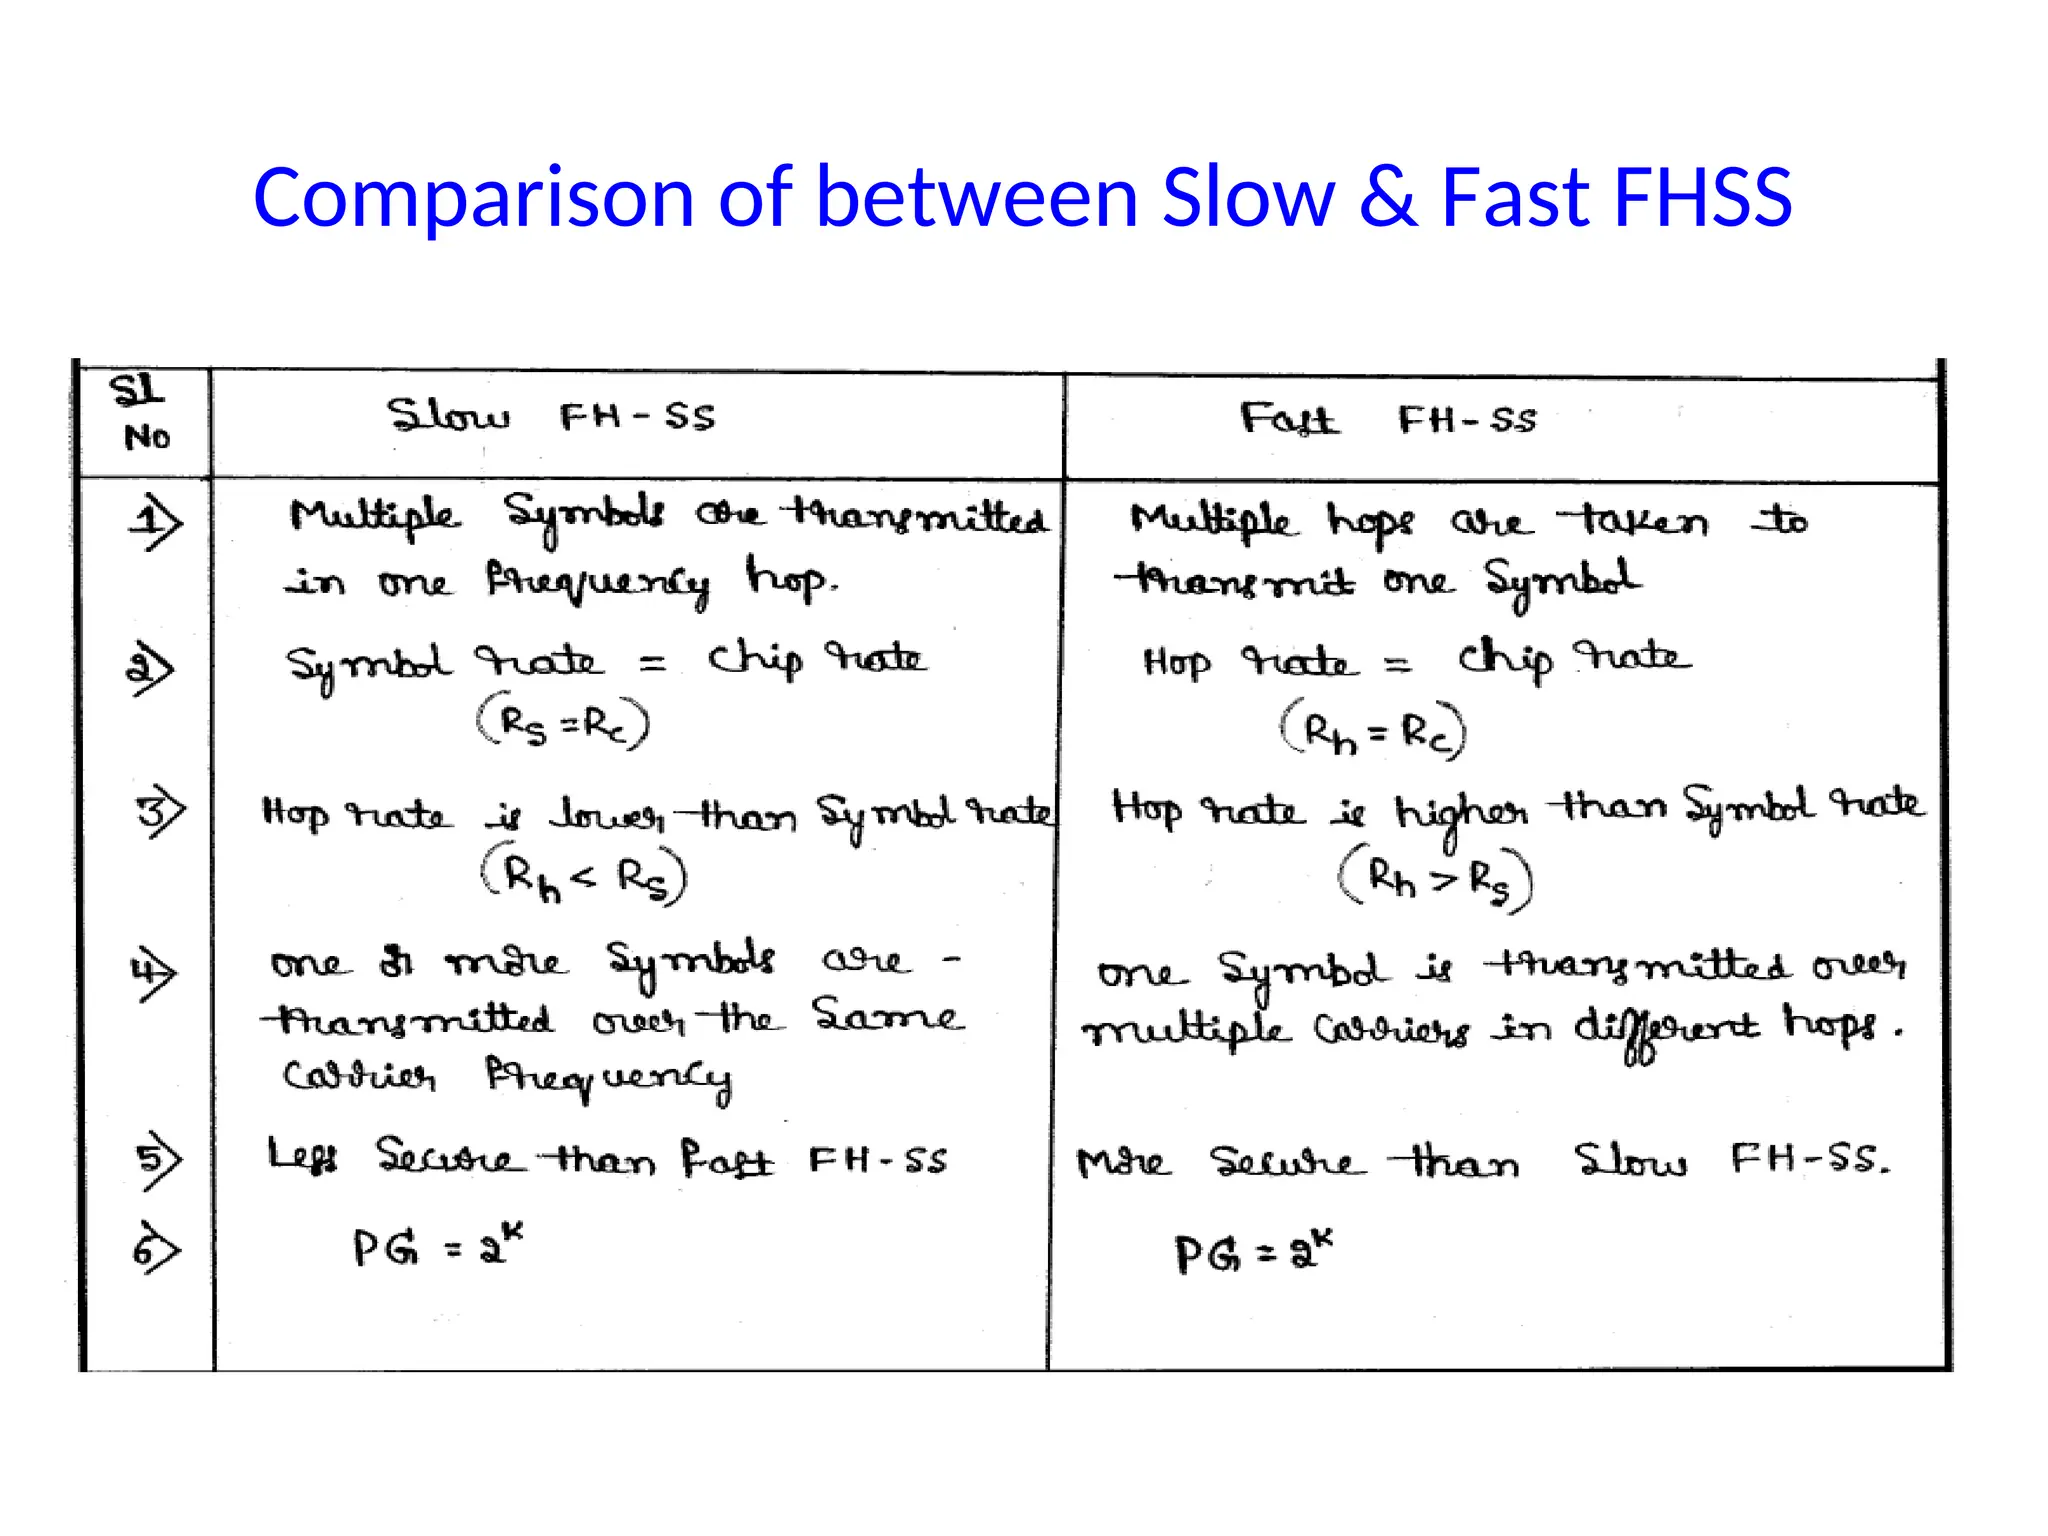 Comparison of between Slow & Fast FHSS
Sl
No
Slow FH-SS
Fast FH-SS
1) Multiple Symbols are transmitted
in one frequency hop.
Multiple hops are taken to
transmit one Symbol
2) Symbol rate = chip rate
(Rs = Rc)
Hop rate = chip rate
(Rh = Rc)
3) Hop rate is lower than Symbol rate
(Rh < Rs)
Hop rate is higher than Symbol rate
(Rh > Rs)
4) one or more Symbols are -
transmitted over the Same
Carrier frequency
one Symbol is transmitted over
multiple Carriers in different hops.
5) Less Secure than fast FH-SS
More Secure than Slow FH-SS.
6) PG = 2^K
PG = 2^K